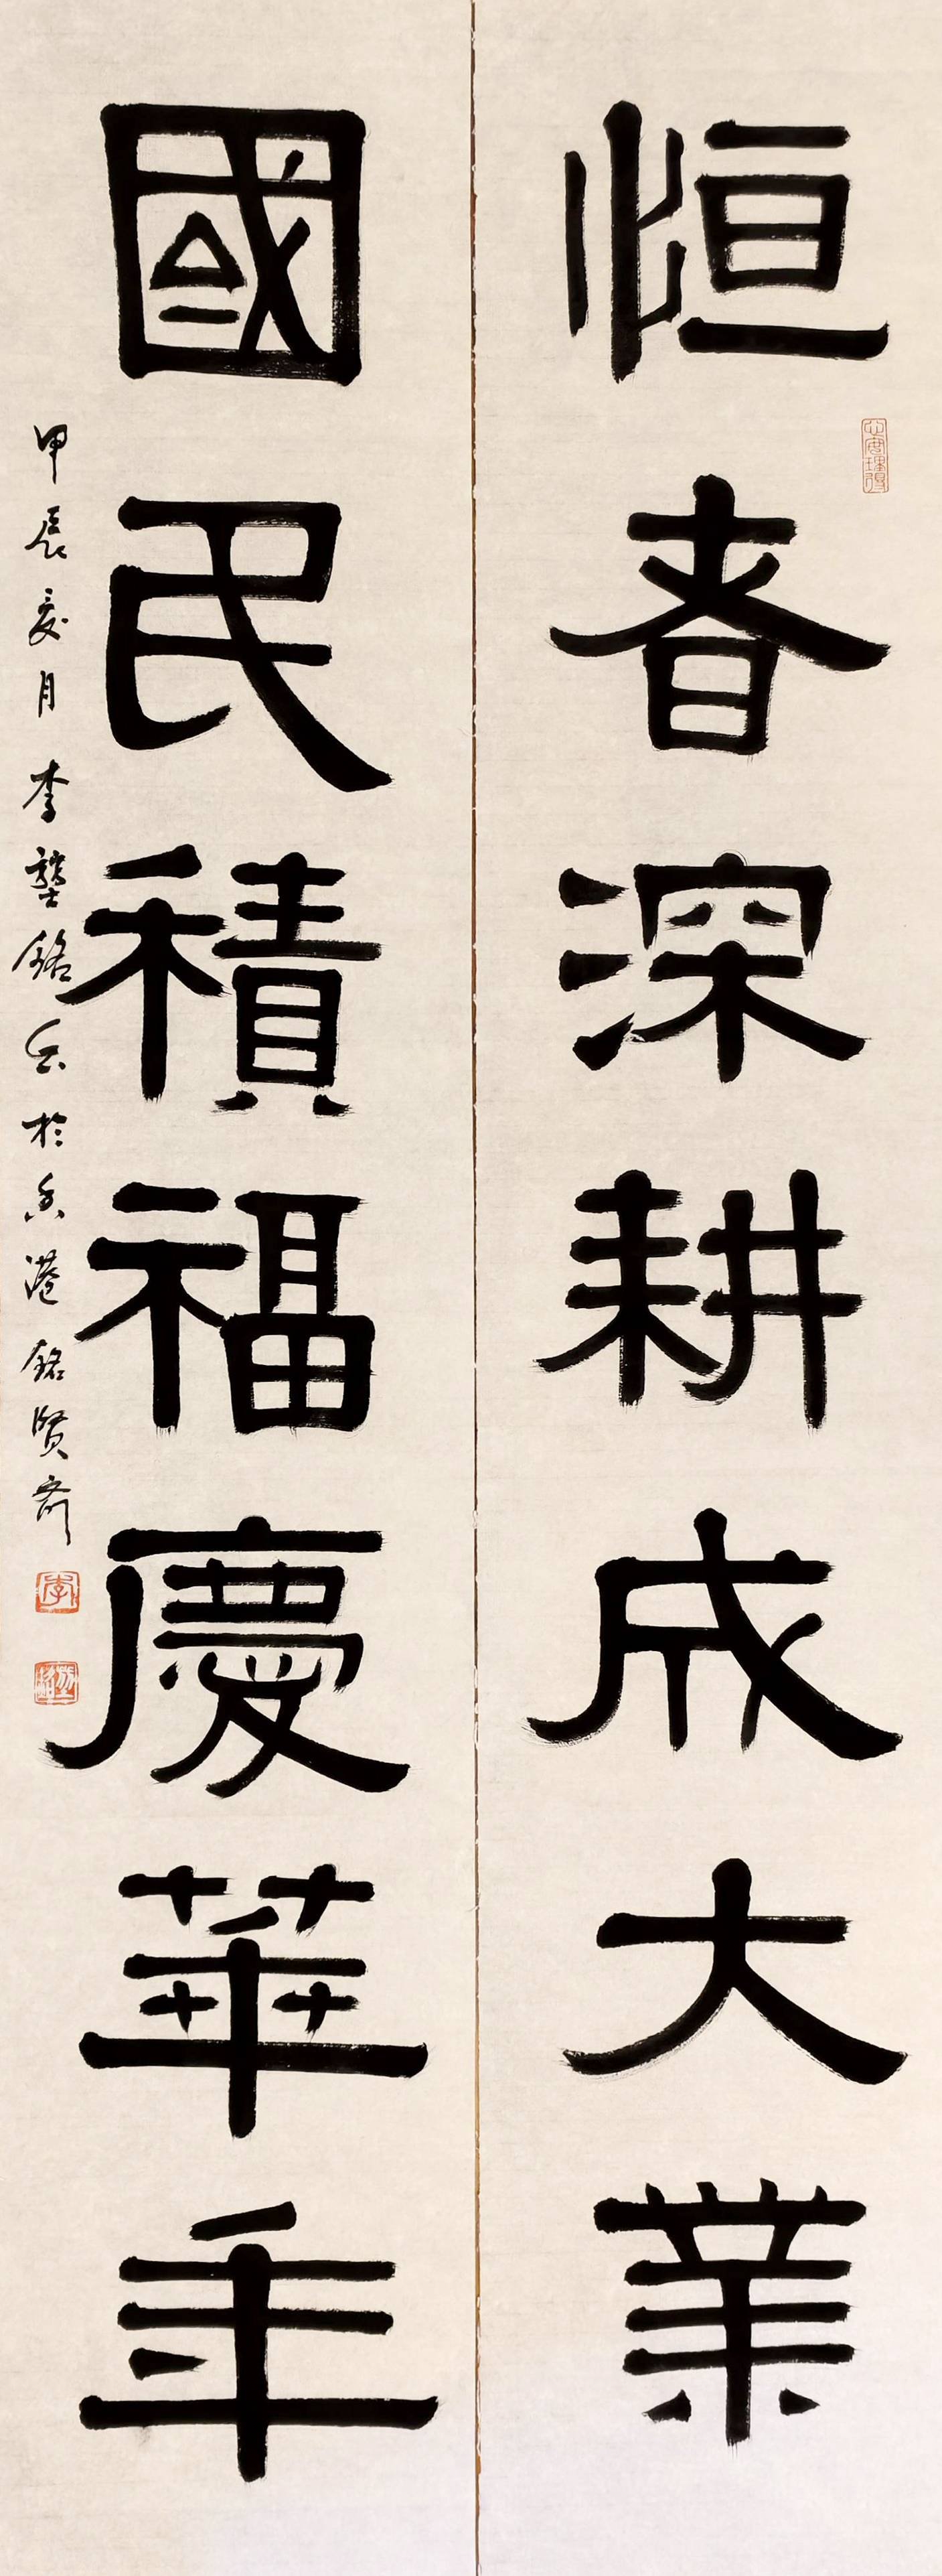 恒春深耕成大業
國民積福慶華年
甲辰夏月李壑銘書於香港銘賢齋
心安理得
李